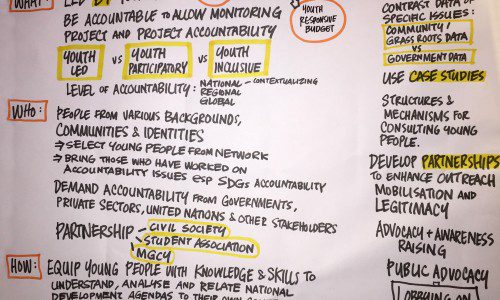 WHAT:
LED BY
BE ACCOUNTABLE TO ALLOW MONITORING
PROJECT AND PROJECT ACCOUNTABILITY
YOUTH LED vs YOUTH PARTICIPATORY vs YOUTH INCLUSIVE
LEVEL OF ACCOUNTABILITY: NATIONAL - CONTEXTUALIZING
REGIONAL
GLOBAL
YOUTH
RESPONSIVE
BUDGET
WHO:
PEOPLE FROM VARIOUS BACKGROUNDS,
COMMUNITIES & IDENTITIES
⇒ SELECT YOUNG PEOPLE FROM NETWORK
⇒ BRING THOSE WHO HAVE WORKED ON
ACCOUNTABILITY ISSUES esp SDGs ACCOUNTABILITY
DEMAND ACCOUNTABILITY FROM GOVERNMENTS,
PRIVATE SECTORS, UNITED NATIONS & OTHER STAKEHOLDERS
PARTNERSHIP - CIVIL SOCIETY
STUDENT ASSOCIATION
MGCY
HOW:
EQUIP YOUNG PEOPLE WITH KNOWLEDGE & SKILLS TO
UNDERSTAND, ANALISE AND RELATE NATIONAL
DEVELOPMENT AGENDAS TO THEIR OWN
CONTRAST DATA OF
SPECIFIC ISSUES:
COMMUNITY/
GRASS ROOTS DATA
vs
GOVERNMENT DATA
USE CASE STUDIES
STRUCTURES &
MECHANISMS FOR
CONSULTING YOUNG
PEOPLE.
DEVELOP PARTNERSHIPS
TO ENHANCE OUTREACH
MOBILISATION AND
LEGITIMACY
ADVOCACY + AWARENESS
RAISING
PUBLIC ADVOCACY